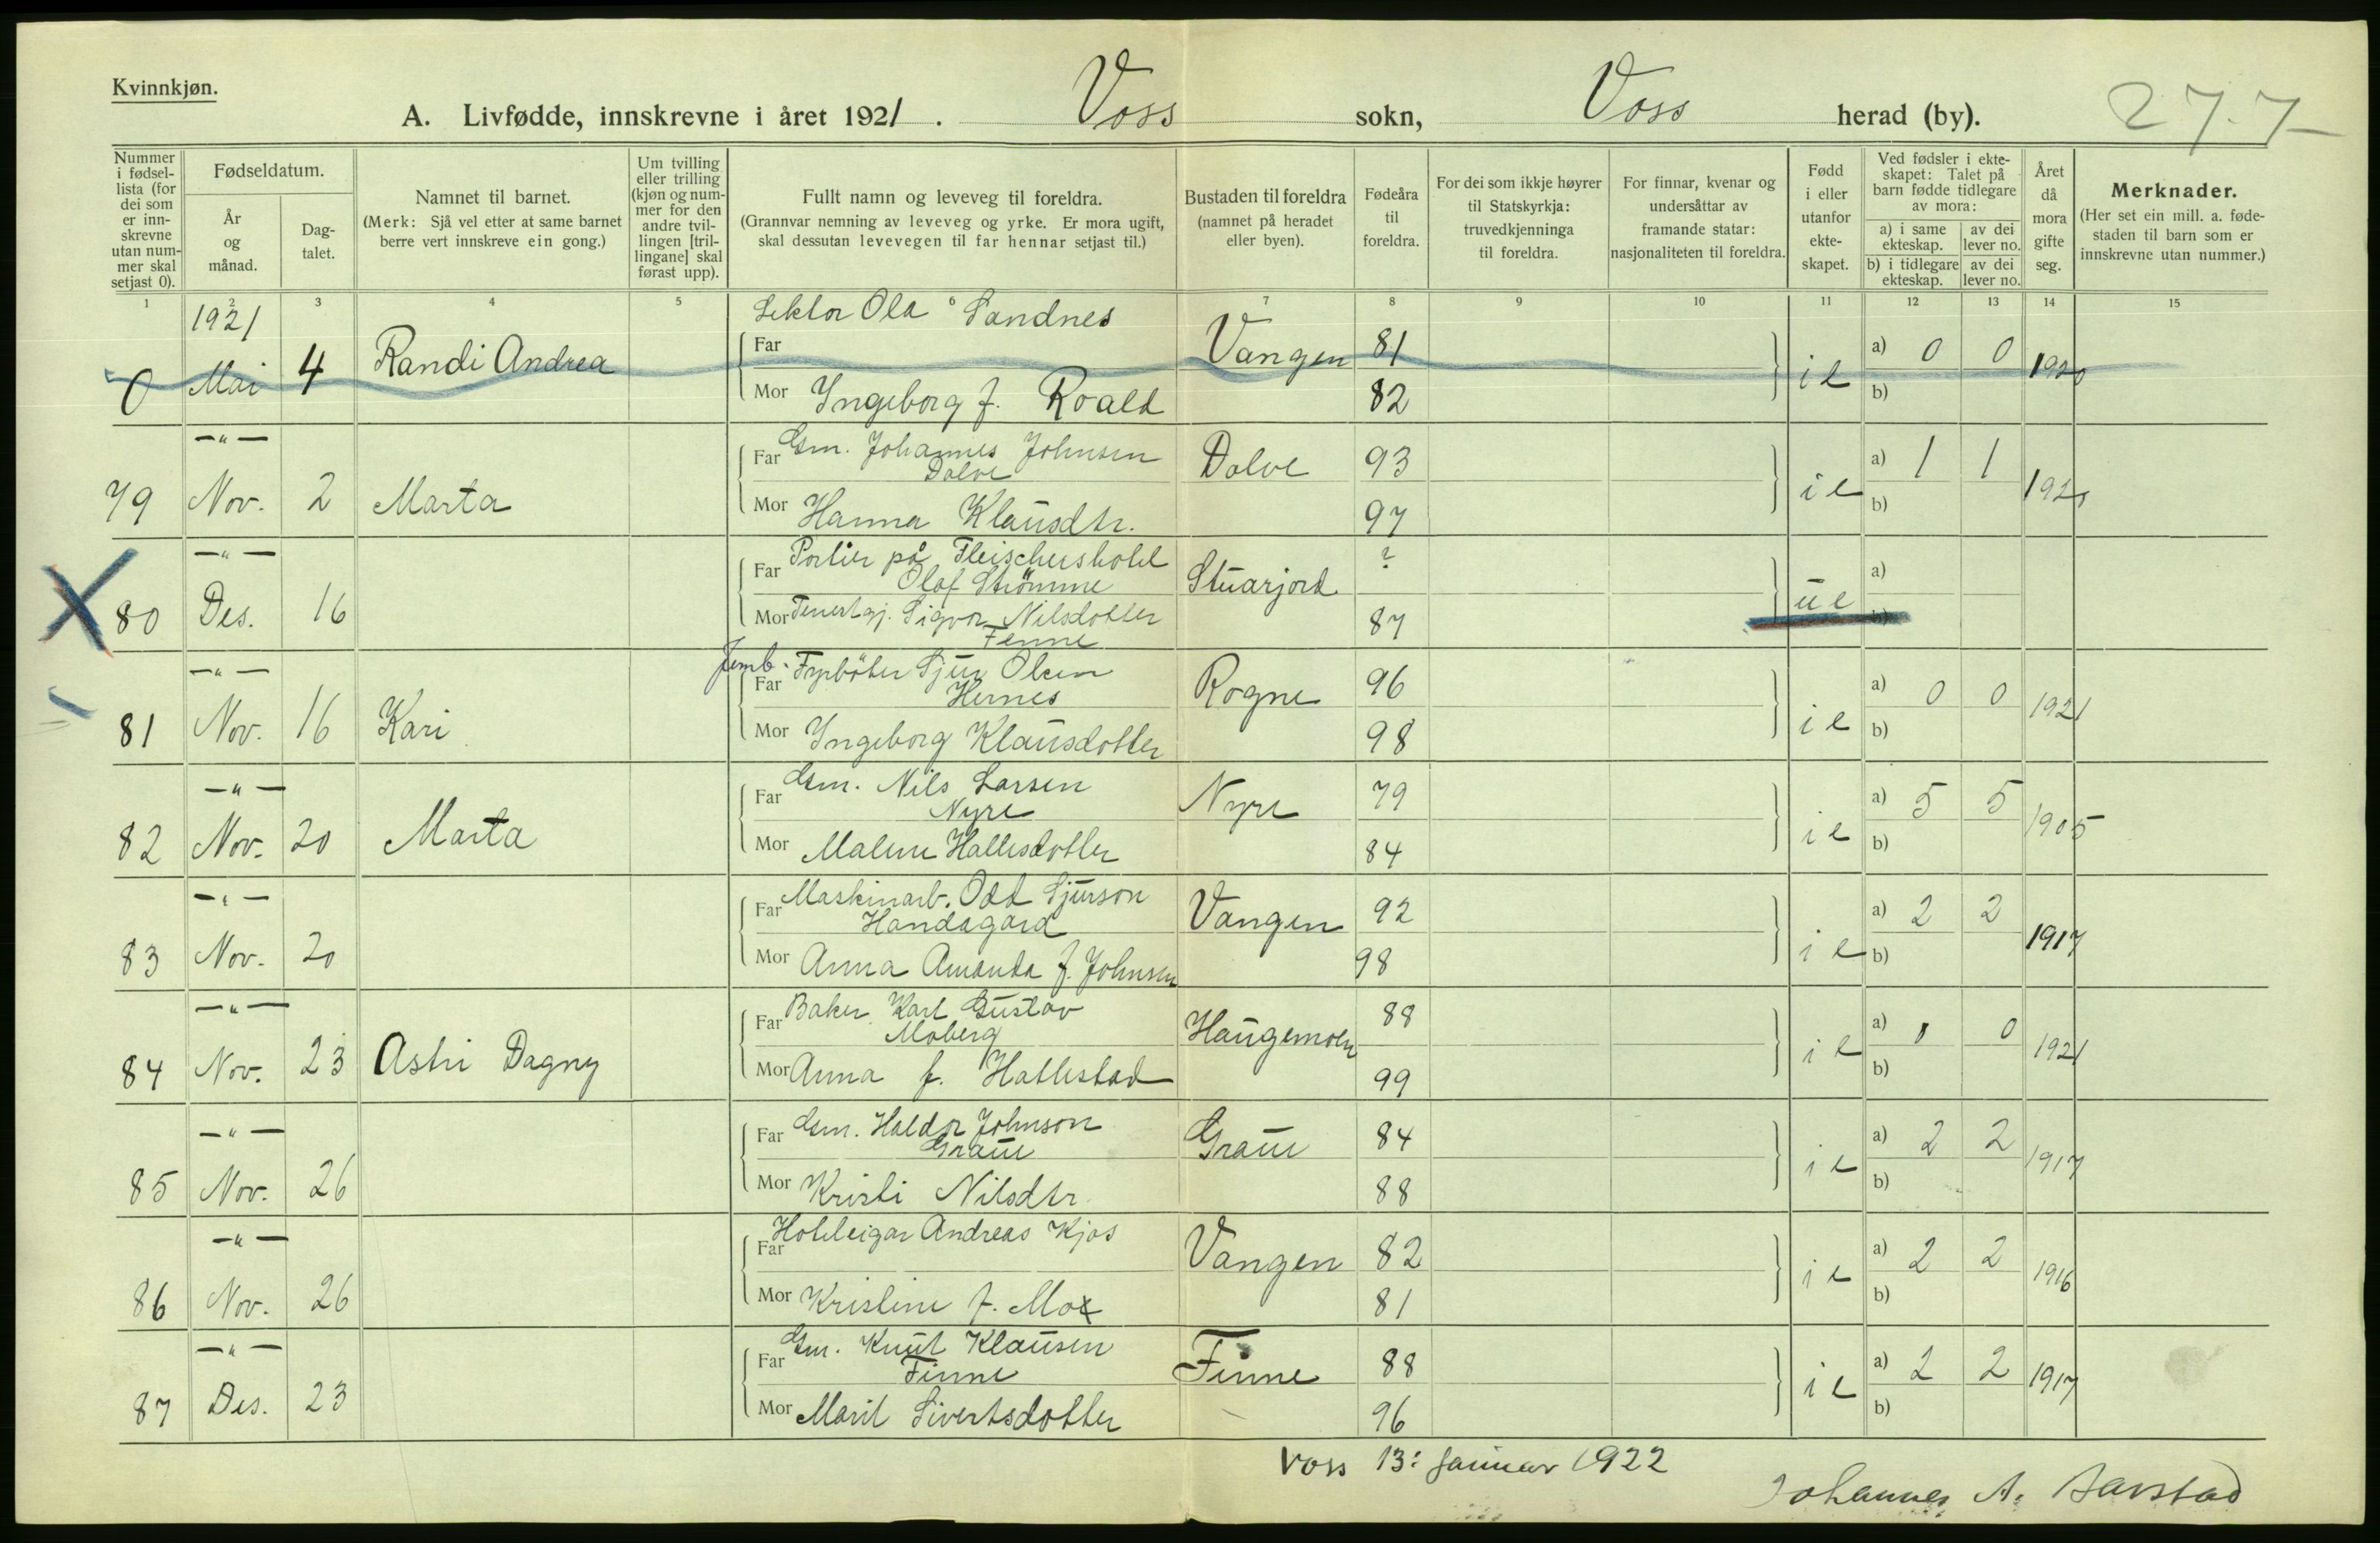 Kvinnkjøn.
A. Livfødde, innskrevne i året 1921. Voss sokn, Voss herad (by). 277
Nummer i fødsellista (for dei som er innskrevne utan nummer skal setjast 0).
Fødseldatum.
År og månad.
Dagtalet.
Namnet til barnet.
(Merk: Sjå vel etter at same barnet berre vert innskreve ein gong.)
Um tvilling eller trilling (kjøn og nummer for den andre tvillingen [trillingane] skal førast upp).
Fullt namn og leveveg til foreldra.
(Grannvar nemning av leveveg og yrke. Er mora ugift, skal dessutan levevegen til far hennar setjast til.)
Bustaden til foreldra (namnet på heradet eller byen).
Fødeåra til foreldra.
For dei som ikkje høyrer til Statskyrkja: truvedkjenninga til foreldra.
For finnar, kvenar og undersåttar av framande statar: nasjonaliteten til foreldra.
Fødd i eller utanfor ekteskapet.
Ved fødsler i ekteskapet: Talet på barn fødde tidlegare av mora:
a) i same ekteskap. av dei lever no.
b) i tidlegare ekteskap. av dei lever no.
Året då mora gifte seg.
Merknader.
(Her set ein mill. a. fødestaden til barn som er innskrevne utan nummer.)
1 2 3 4 5 6 7 8 9 10 11 12 13 14 15
1921 Lektor Ola Sandnes
0 Mai 4 Randi Andrea Far Vangen 81 ie a) 0 0 1920
Mor Ingeborg f. Roald 82 b)
—"— Far Gm. Johannes Johnsen Dalve Dolve 93 a) 1 1
79 Nov. 2 Marta Mor Hanna Klausdtr. 97 ie b)
—"— Far Portier på Fleischershotel Olaf Strömme Stuarjord ? a)
80 Des. 16 Mor Tenestgj. Sigvor Nilsdotter Fenne 87 ue b)
—"— Jernb. Far Fyrböter Sjur Olsen Hernes Rogne 96 a) 0 0 1921
81 Nov. 16 Kari Mor Ingeborg Klausdotter 98 ie b)
—"— Far Gm. Nils Larsen Nyre Nyre 79 a) 5 5 1905
82 Nov. 20 Marta Mor Malene Hallesdotter 84 ie b)
—"— Far Maskinarb. Odd Sjurson Handagard Vangen 92 a) 2 2 1917
83 Nov. 20 Mor Anna Amanda f. Johnsen 98 ie b)
—"— Far Baker Karl Gustav Moberg Haugamoen 88 a) 0 0 1921
84 Nov. 23 Astri Dagny Mor Anna f. Hallestad 99 ie b)
—"— Far Gm. Haldor Johnson Graue Graue 84 a) 2 2 1917
85 Nov. 26 Mor Kristi Nilsdtr 88 ie b)
—"— Far Hoteleigar Andreas Kjos Vangen 82 a) 2 2 1916
86 Nov. 26 Mor Kristine f. Mox 81 ie b)
—"— Far Gm. Knut Klausen Finne Finne 88 a) 2 2 1917
87 Des. 23 Mor Marit Sivertsdotter 96 ie b)
Voss 13: januar 1922
Johannes A. Aarstad